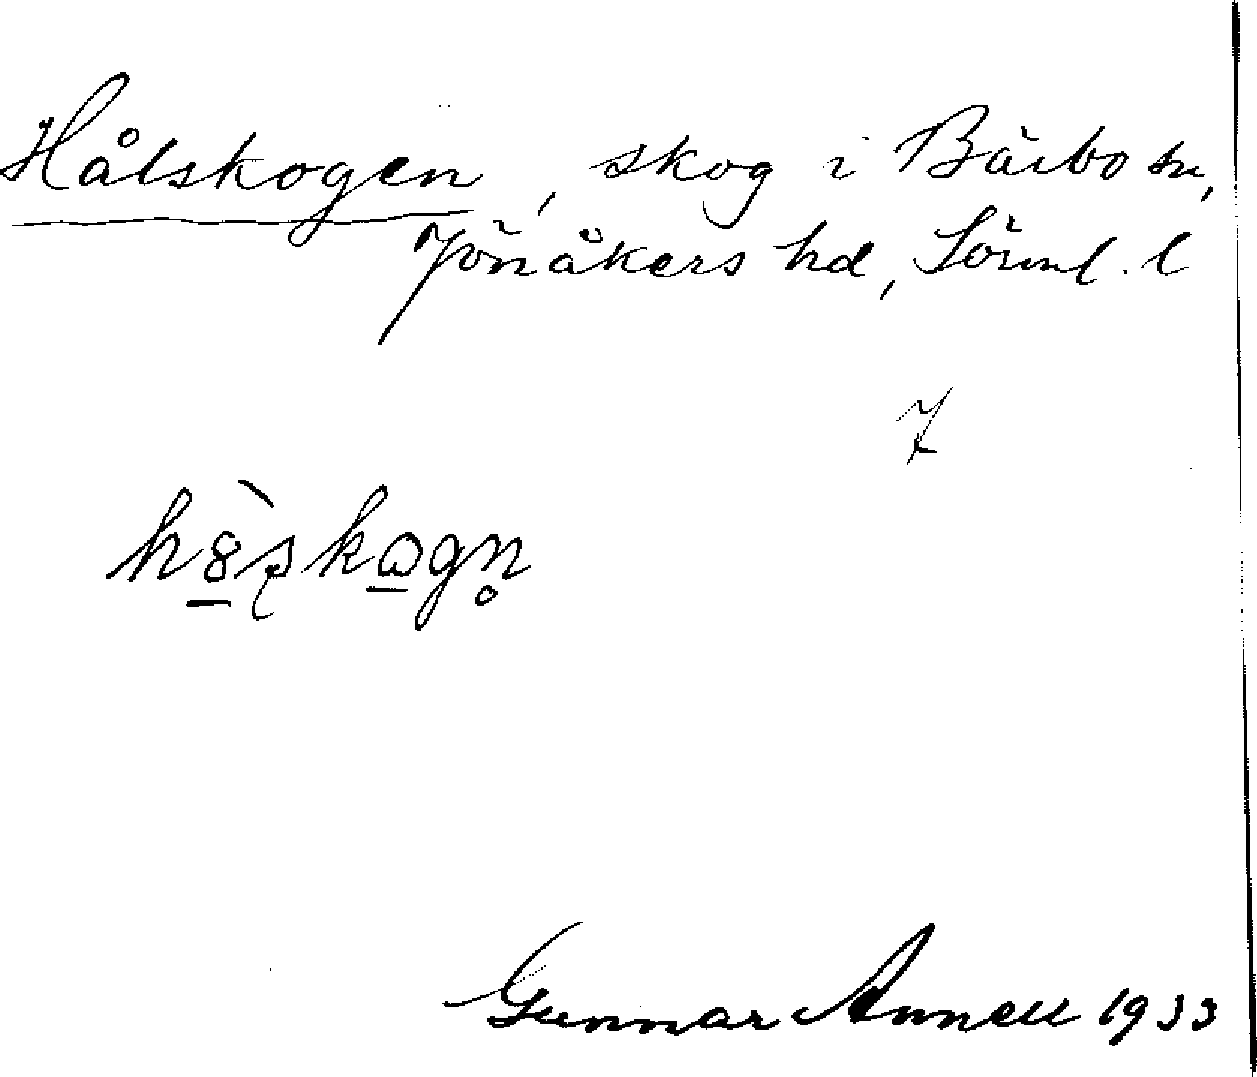 Hålskogen, skog i Bärbo sn,
Jönåkers hd, Sörml. l
7
Gunnar Annell 1933